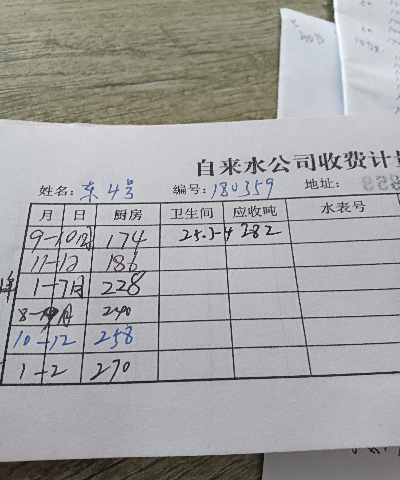 自来水公司收费计
姓名: 东4号 编号: 180359 地址:
月 日 厨房 卫生间 应收吨 水表号
9-10月 174 25.3-4 282
11-12 186
1-7月 228
8-9月 240
10-12 258
1-2 270